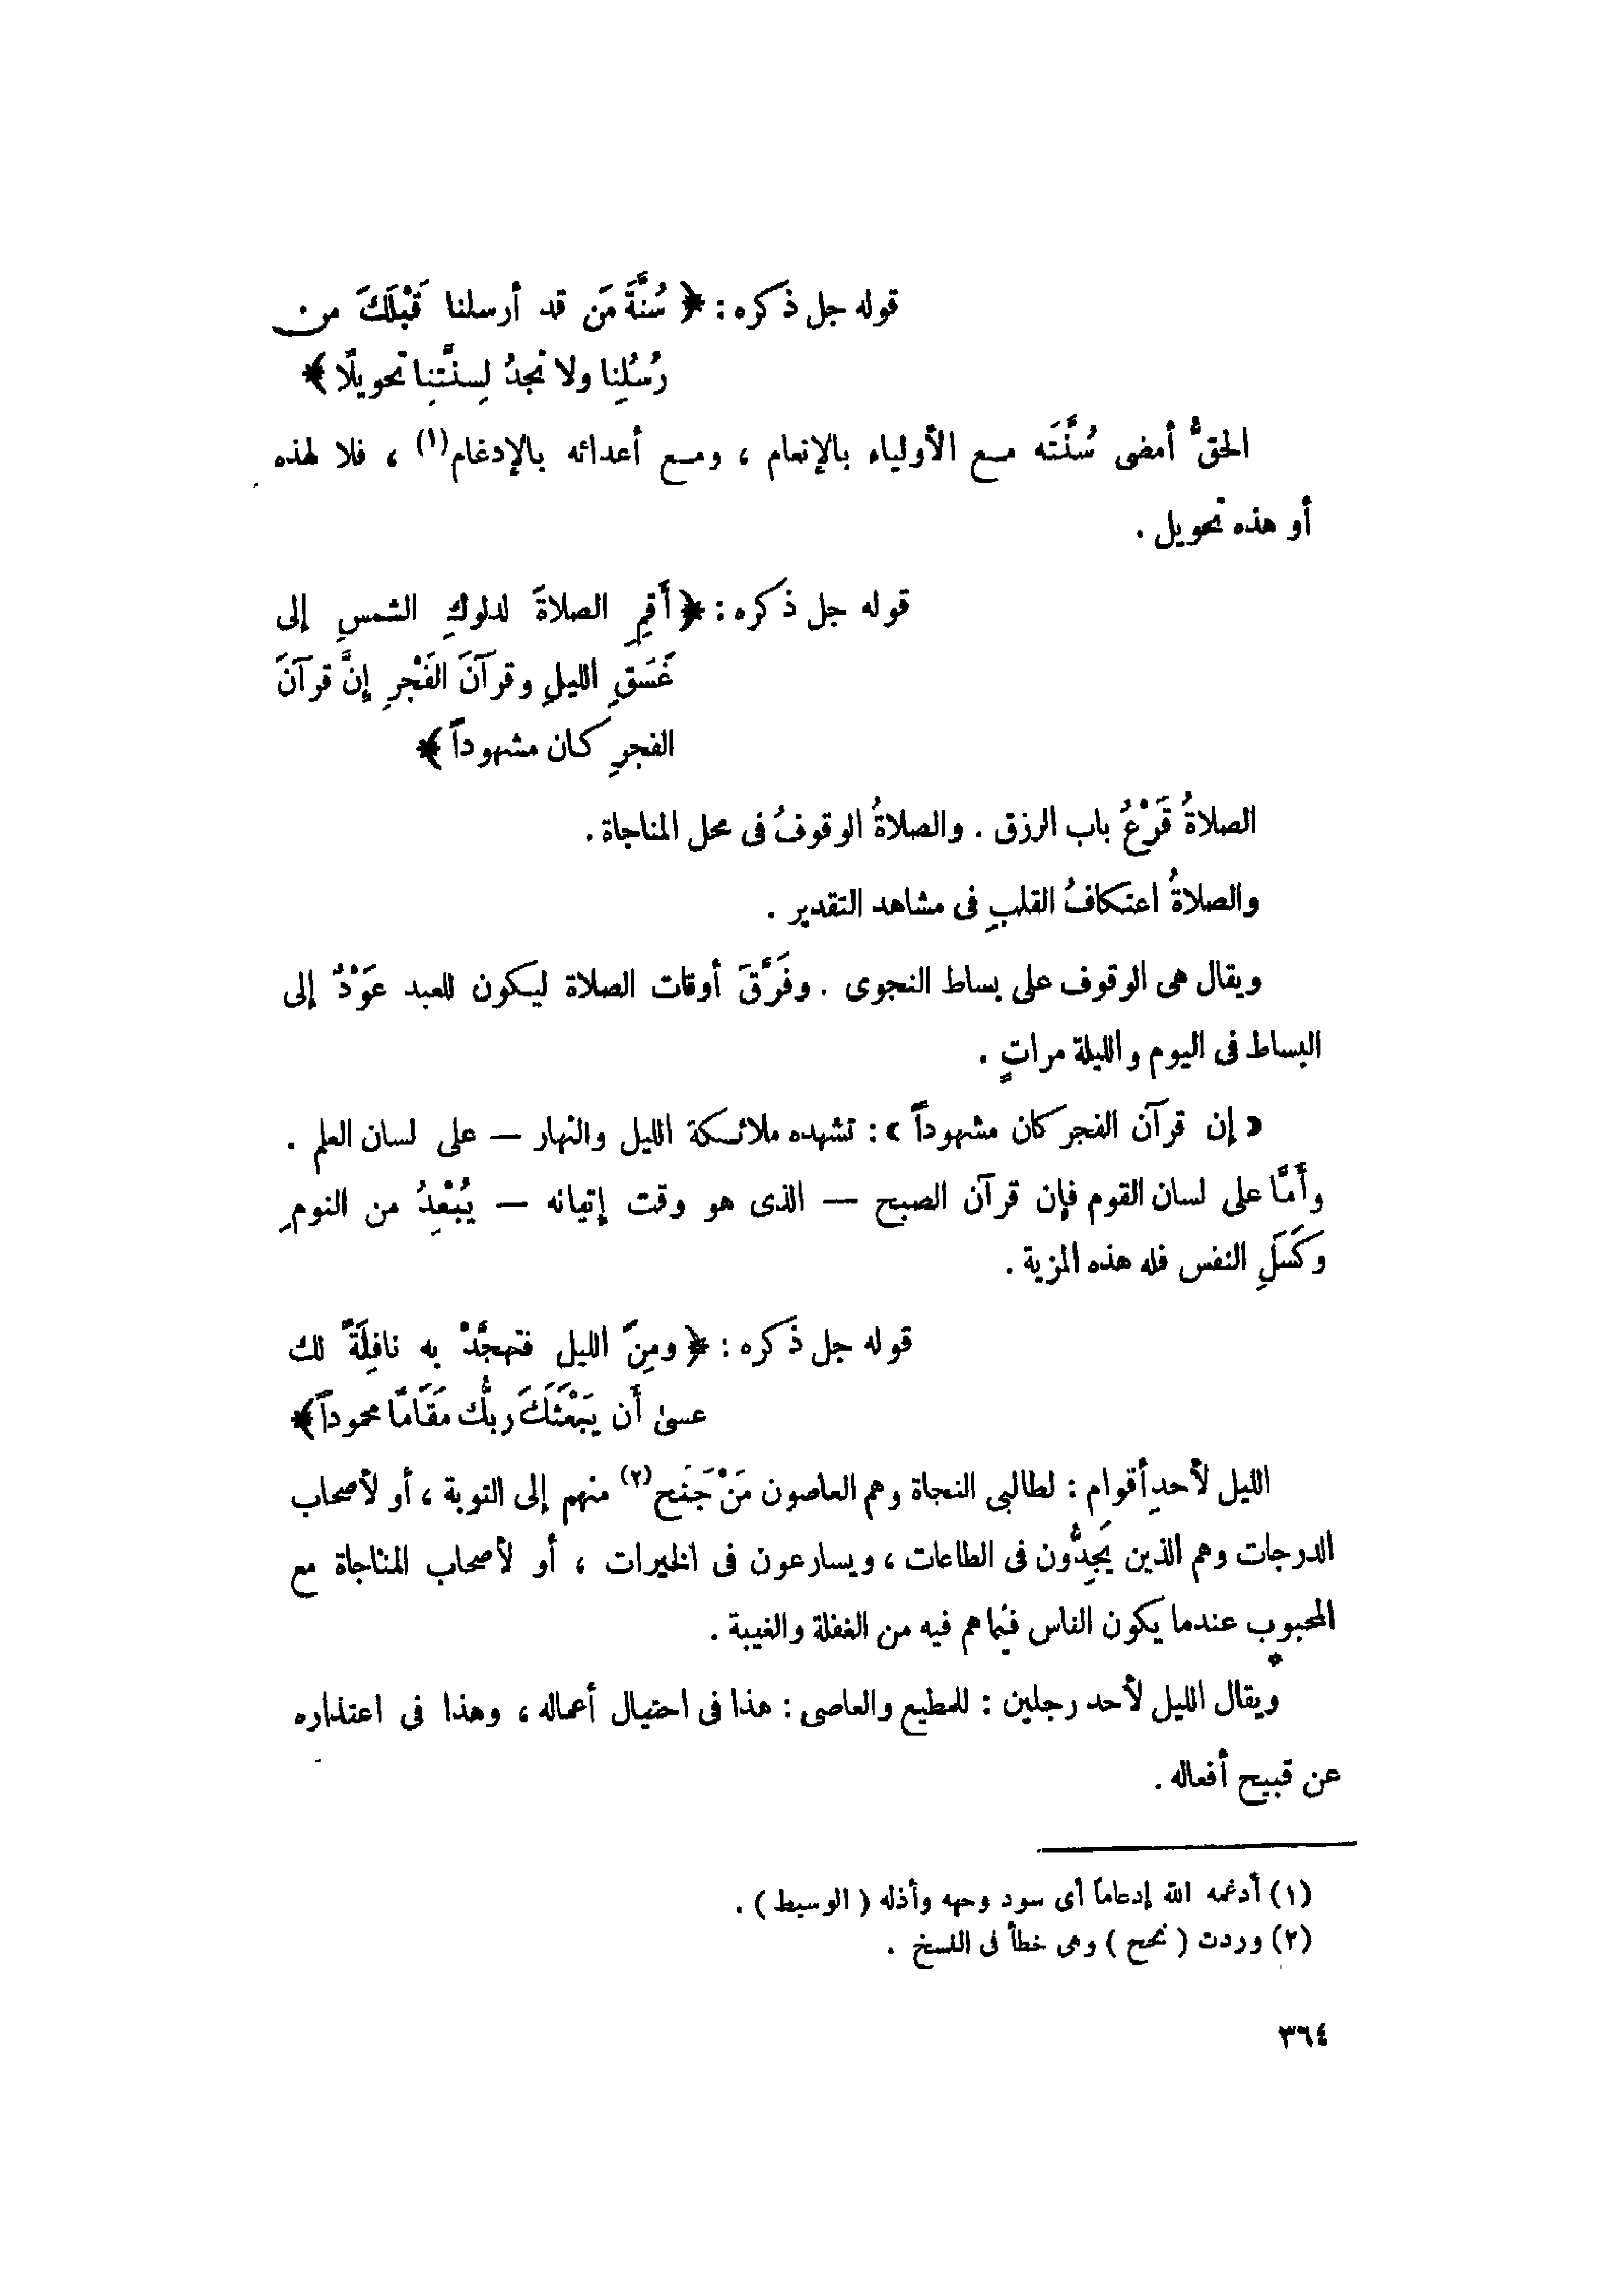 قوله جل ذكره : ﴿ سُنَّةَ مَن قد أرسلنا قَبْلَكَ من
رُسُلِنا ولا تجدُ لِسنَّتِنا تحويلًا ﴾
الحقُّ أمضى سُنَّتَه مع الأولياء بالإنعام ، ومع أعدائه بالإدغام(١) ، فلا لهذه
أو هذه تحويل .
قوله جل ذكره : ﴿ أَقِمِ الصلاةَ لدلوكِ الشمسِ إلى
غَسَقِ الليلِ وقرآنَ الفَجْرِ إنَّ قرآنَ
الفجرِ كان مشهوداً ﴾
الصلاةُ قَرْعُ باب الرزق . والصلاةُ الوقوفُ فى محل المناجاة .
والصلاةُ اعتكافُ القلبِ فى مشاهد التقدير .
ويقال هى الوقوف على بساط النجوى . وفَرَّقَ أوقات الصلاة ليكون للعبد عَوْدٌ إلى
البساط فى اليوم والليلة مراتٍ .
« إن قرآن الفجر كان مشهوداً » : تشهده ملائكة الليل والنهار — على لسان العلم .
وأمَّا على لسان القوم فإن قرآن الصبح — الذى هو وقت إتيانه — يُبْعِدُ من النومِ
وكَسَلِ النفس فله هذه المزية .
قوله جل ذكره : ﴿ ومِنَ الليل فتهجَّدْ به نافِلَةً لك
عسىٰ أن يَبْعَثَكَ ربُّك مَقَامًا محموداً ﴾
الليل لأحدِ أقوام : لطالبى النجاة وهم العاصون مَنْ جَنَح(٢) منهم إلى التوبة ، أو لأصحاب
الدرجات وهم الذين يَجِدُّون فى الطاعات ، ويسارعون فى الخيرات ، أو لأصحاب المناجاة مع
المحبوب عندما يكون الناس فيما هم فيه من الغفلة والغيبة .
ويقال الليل لأحد رجلين : للمطيع والعاصى : هذا فى احتيال أعماله ، وهذا فى اعتذاره
عن قبيح أفعاله .
(١) أدغمه الله إدغاماً أى سود وجهه وأذله ( الوسيط ) .
(٢) وردت ( نجح ) وهى خطأ فى النسخ .
٣٦٤